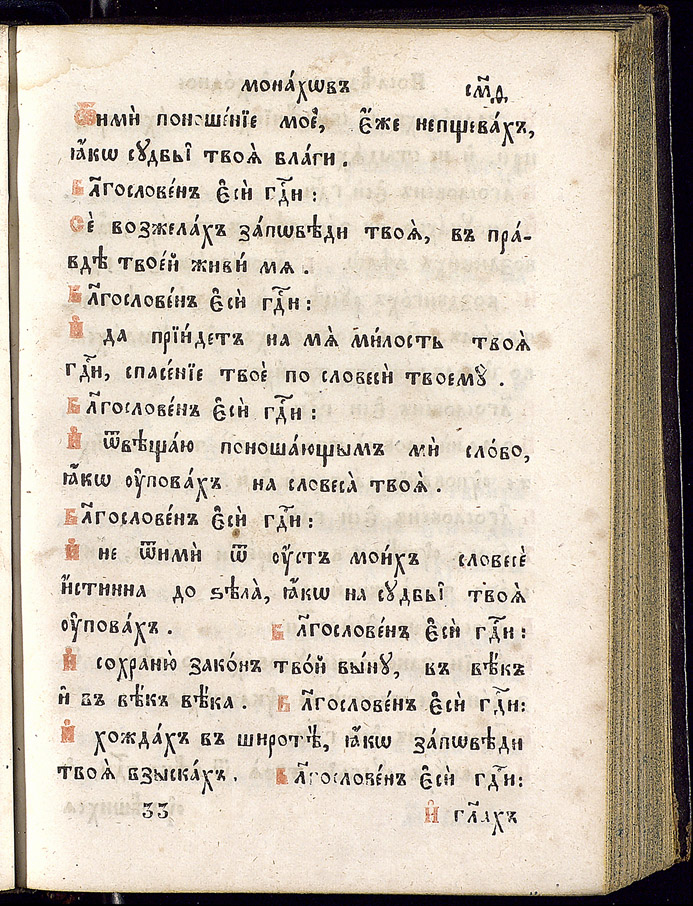 мона́хѡвъ см҃ѳ
Ѿимѝ поноше́нїе моѐ, є҆́же непщева́хъ,
ꙗ҆́кѡ сꙋдьбы̀ твоѧ̀ бла́ги.
Бл҃гослове́нъ є҆сѝ гдⷭ҇и:
Сѐ возжела́хъ за́пѡвѣди твоѧ̀, въ пра́-
вдѣ твое́й живи́ мѧ.
Бл҃гослове́нъ є҆сѝ гдⷭ҇и:
И҆̀ да прїи́детъ на мѧ̀ ми́лость твоѧ̀
гдⷭ҇и, спасе́нїе твоѐ по словесѝ твоемꙋ̀.
Бл҃гослове́нъ є҆сѝ гдⷭ҇и:
И҆̀ ѿвѣща́ю поноша́ющымъ мѝ сло́во,
ꙗ҆́кѡ ᲂу҆пова́хъ на словеса̀ твоѧ̀.
Бл҃гослове́нъ є҆сѝ гдⷭ҇и:
И҆̀ не ѿимѝ ѿ ᲂу҆́стъ мои́хъ словесѐ
и҆́стинна до ѕѣла̀, ꙗ҆́кѡ на сꙋдьбы̀ твоѧ̀
ᲂу҆пова́хъ. Бл҃гослове́нъ є҆сѝ гдⷭ҇и:
И҆̀ сохраню̀ зако́нъ тво́й вы́нꙋ, въ вѣ́къ
и҆ въ вѣ́къ вѣ́ка. Бл҃гослове́нъ є҆сѝ гдⷭ҇и:
И҆̀ хожда́хъ въ широтѣ̀, ꙗ҆́кѡ за́пѡвѣди
твоѧ̀ взыска́хъ. Бл҃гослове́нъ є҆сѝ гдⷭ҇и:
33 И҆̀ гл҃ахъ